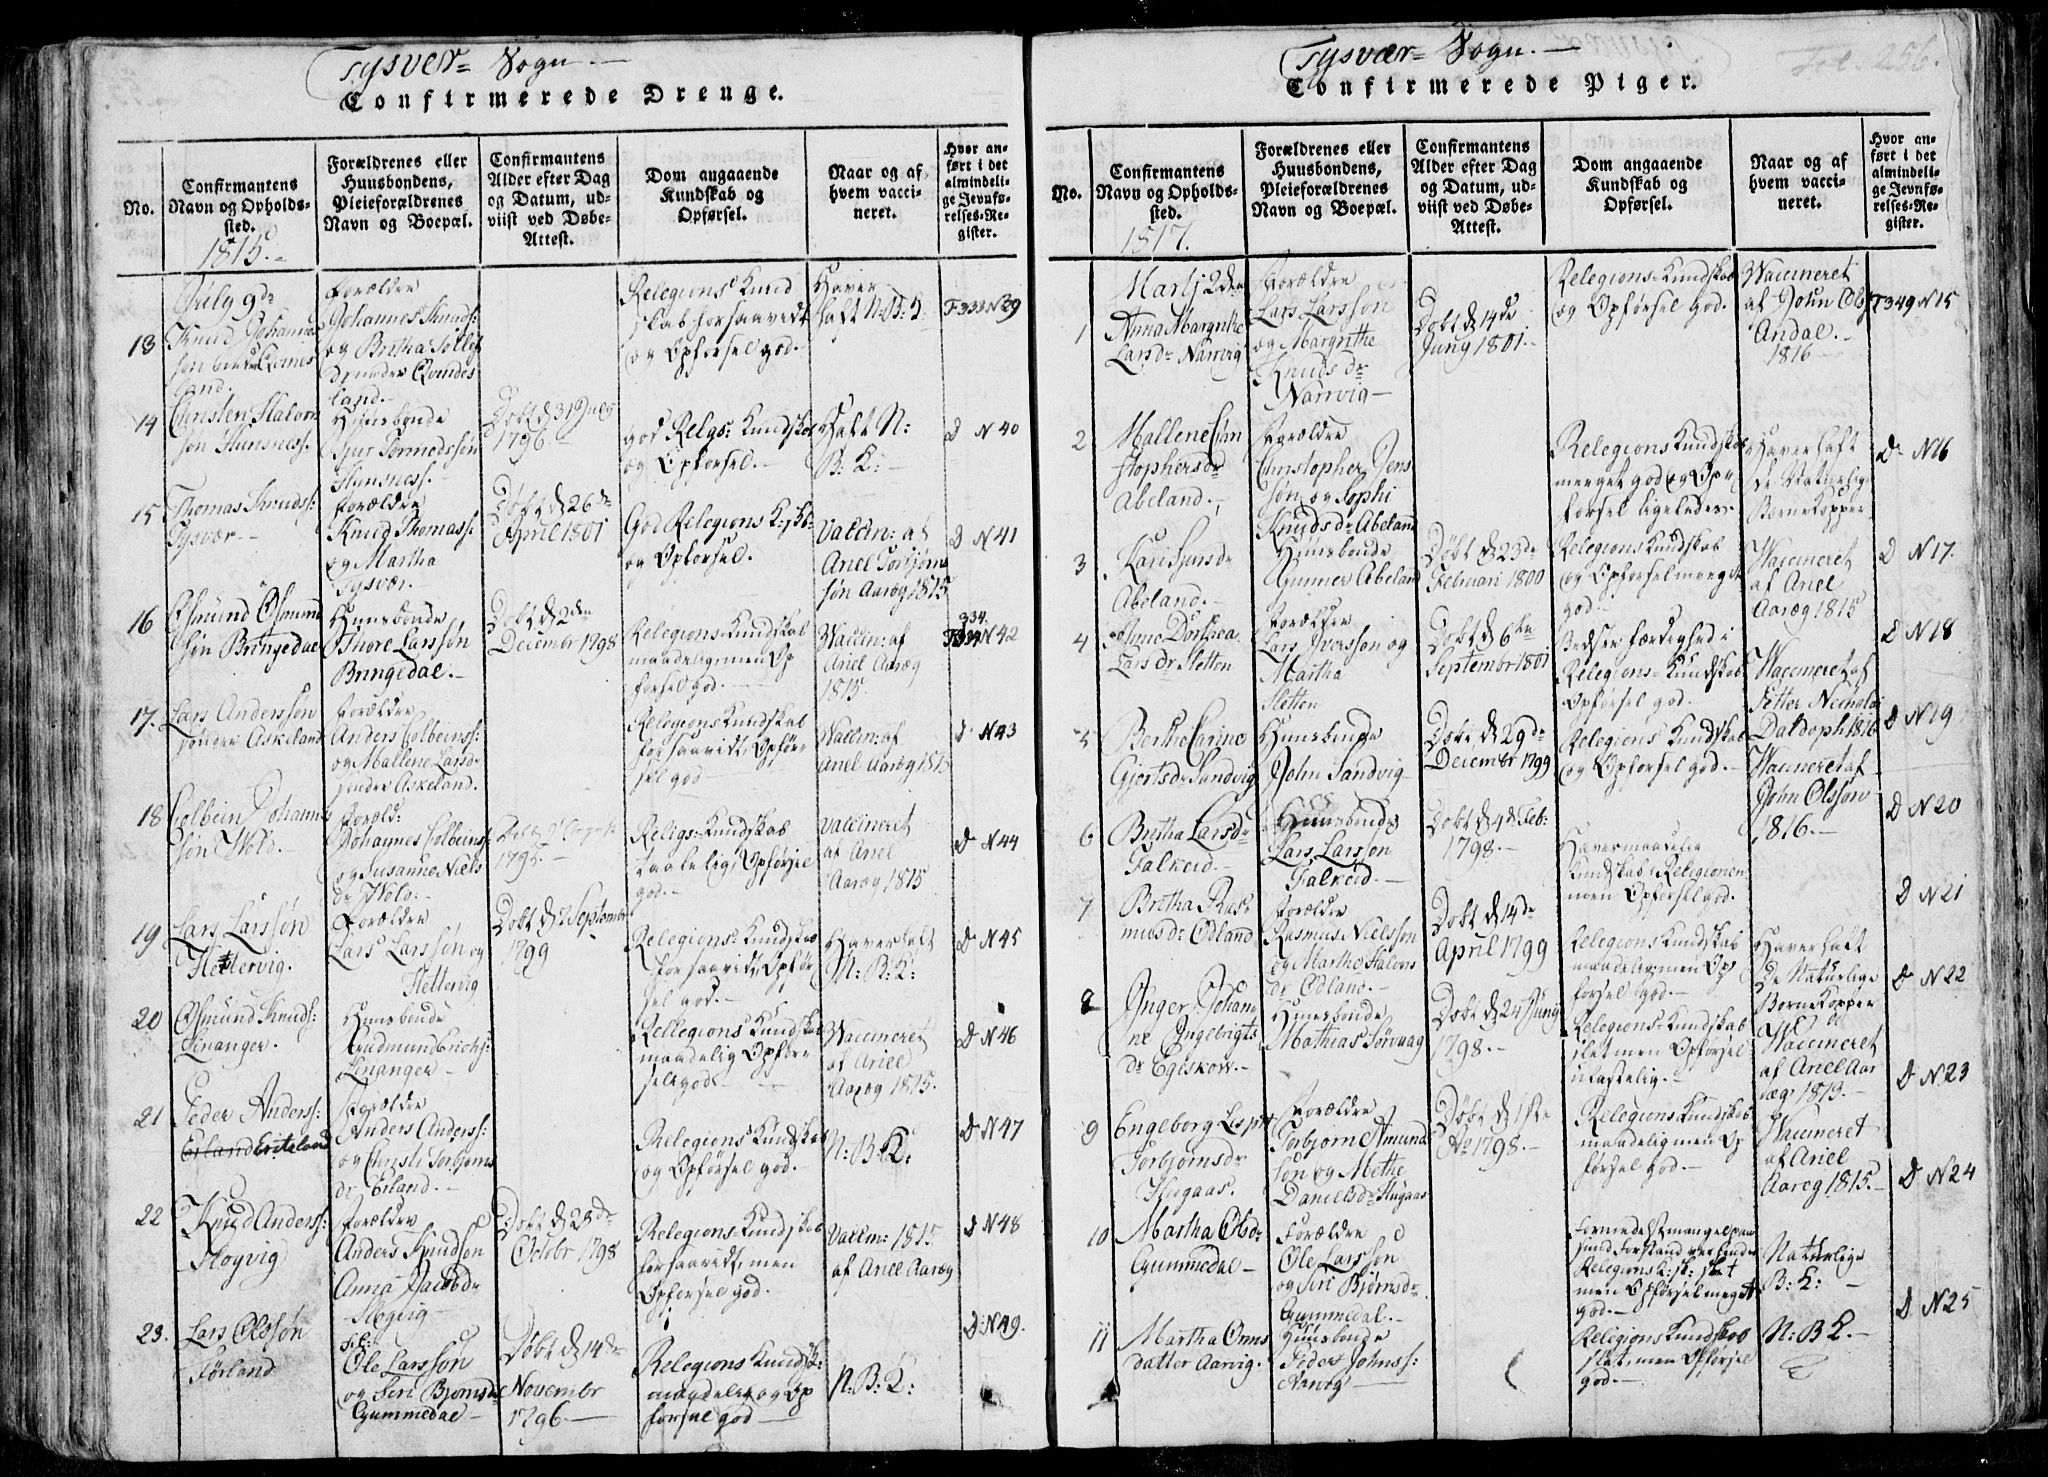 Tysvær= Sogn.—
Confirmerede Drenge.
No.
Confirmantens
Navn og Opholds-
sted.
Forældrenes eller
Huusbondens,
Pleieforældrenes
Navn og Boepæl.
Confirmantens
Alder efter Dag
og Datum, ud-
viist ved Døbe-
Attest.
Dom angaaende
Kundskab og
Opførsel.
Naar og af
hvem vacci-
neret.
Hvor an-
ført i det
almindeli-
ge Jevnfø-
relses-Re-
gister.
1815.
July 9de
13
Knud Johannes
land.
Forældre
Johannes Knuds:
og Bertha
land.
Religions Kund
skab forsaavidt
og Opførsel god.
Haver
haft N: B: K:
F 333 N 39
14
Christen
søn Hunsness.
Huusbonde
Sjur Tormodssøn
Hunsness.
Døbt d 31 July
1796.
god Relgs: Kundskab
og Opførsel.
Haft N:
B: K:
D N 40
15
Thomas Knuds:
Tysvær
Forældre
Knud Thomass:
og Martha
Tysvær.
Døbt d 26de
April 1801
God Religions K:skb:
og Opførsel.
Vaccin: af
Ariel Torbjørns
søn Aaræg 1815
D N 41
16
Osmund Osmund
søn Bringedal
Huusbonde
Snore Larssøn
Bringedal.
Døbt d 2den
Decembr 1798
Religions Kundskab
maadelig, men Op
førsel god.
Vaccin: af
Ariel Aaræg
1815.
334.
N 42
17.
Lars Anderssøn
Søndre Askeland
Forældre
Anders Colbeinss:
og Mallene Larsd:
Søndre Askeland.
Religions Kundskab
forsaavidt, Opfør
sel god
Vaccin: af
Ariel Aaræg 1815
D N 43
18
Colbein Johannes
søn Wold.
Foræld:
Johannes Colbeins:
og Susanna Niels
dr Wold.
1795.
Religs: Kundskab
taalelig, Opførsel
god.
Vaccineret
af Ariel
Aaræg 1815
D N 44
19
Lars Larssøn
Hettervig.
Forældre
Lars Larssøn og
Hettervig
Døbt d Septembr
1799
Religions Kundskab
forsaavidt, Opfør
sel god.
Haver haft
N: B: K:
D N 45
20
Osmund Knuds:
Lenanger.
Huusbonde
Gudmund Erichs:
Lenanger
Religions Kundskab
maadelig Opføre
sel god.
Vaccineret
af Ariel
Aaræg 1815.
D N 46
21
Peder Anderss:
Erland
Forældre
Anders Anderss:
og Christi Torbjørns
dr Erland.
Religions Kundskab
og Opførsel god.
N: B: K:
D N 47
22
Knud Anderss:
Slogvig
Forældre
Anders Knudsøn
Anna Jacobdr
Slogvig
Døbt d 28de
Octobr 1798
Religions Kundskab
forsaavidt, men
Opførsel god.
Vaccin: 1815
af Ariel Aaræg
D N 48
23.
Lars Olssøn
Førland
Ole Larssøn
og Siri Bjørnsdr
Gummedal
Døbt d 14de
Novembr
1796.
Religions Kundsk:
maadelig og Op
førsel god
N: B: K:
D N 49.
Tysvær= Sogn.—
Fol. 256.
Confirmerede Piger.
No.
Confirmantens
Navn og Opholds-
sted.
Forældrenes eller
Huusbondens,
Pleieforældrenes
Navn og Boepæl.
Confirmantens
Alder efter Dag
og Datum, ud-
viist ved Døbe-
Attest.
Dom angaaende
Kundskab og
Opførsel.
Naar og af
hvem vacci-
neret.
Hvor an-
ført i det
almindeli-
ge Jevnfø-
relses-Re-
gister.
1817.
Martj 2den
1
Anna Margrethe
Larsdr Narrvig
Forældre
Lars Larssøn
og Margrithe
Knudsdr
Narrvig
Døbt d 14de
Juny 1801.
Religions Kundskab
og Opførsel god.
Vaccineret
af John Ols
Andal.
1816
F 349 N 15
2
Mallene Chri
stophersdr
Abeland.
Forældre
Christopher Jens
søn og Sophi
Knudsdr Abeland
Religions Kundskab
meeget god, og Op
førsel ligeledes.
Haver haft
de Naturlige
Børne Kopper
D N 16
3
Kari Sjursdr
Abeland.
Huusbonde
Gunner Abeland
Døbt d 23de
Februari 1800
Religions Kundskab
og Opførsel meeget
god.
Vaccineret
af Ariel
Aaræg 1815
D N 17
4
Anne Dorthea
Larsdr Sletten
Forældre
Lars Iverssøn og
Martha
Sletten
Døbt d 6te
Septembr 1801
Bedste færdighed i
Religions Kundskab
Opførsel god.
Vaccineret af
Petter Nicholai
Daldoph 1816
D N 18
5
Berthe Carine
Gjertsdr Sandvig
Huusbonde
John Sandvig
Døbt d 29de
Decembr 1799
Religions Kundskab
og Opførsel god.
Vaccineret af
John Olssøn
1816.
D N 19
6
Bretha Larsdr
Falkeid.
Huusbonde
Lars Larssøn
Falkeid.
Døbt d 4de Feb:
1798.
Haver maadelig
Kundskab i Religionen
men Opførsel god.
D N 20
7
Bretha Ras
musdr Ødland
Forældre
Rasmus Nielssøn
og Marthe
dr Ødland.
Døbt d 14de
April 1799
Religions Kundskab
maadelig, men Op
førsel god.
Haver haft
de Naturlige
Børne Kopper
D N 21
8
Inger Johan
ne Ingebrigts
dr Egeskow.
Huusbonde
Mathias Sørvaag
Døbt d 24 Juny
1798.
Religions Kundskab
slet men Opførsel
ulastelig.
Vaccineret
af Ariel Aar
1813.
D N 22
9
Engeborg
Torbjørnsdr
Hugaas.
Forældre
Torbjørn Amund
søn og Methe
Danielsdr Hugaas
Døbt d 1ste
1798.
Religions Kundskab
maadelig men Op
førsel god.
Vaccineret
af Ariel
Aareg 1815.
D N 23
10
Martha Olsdr
Gummedal
Forældre
Ole Larssøn
og Siri Bjørnsdr
Gummedal.
Religions K:sk: slet
men Opførsel meget
god.
Naturlige
B: K:
D N 24
11
Martha Orms
datter Aarvig.
Huusbonde
Peder Johnss:
Religions Kundskab
slet, men Opførsel
god.
N: B K.
D N 25